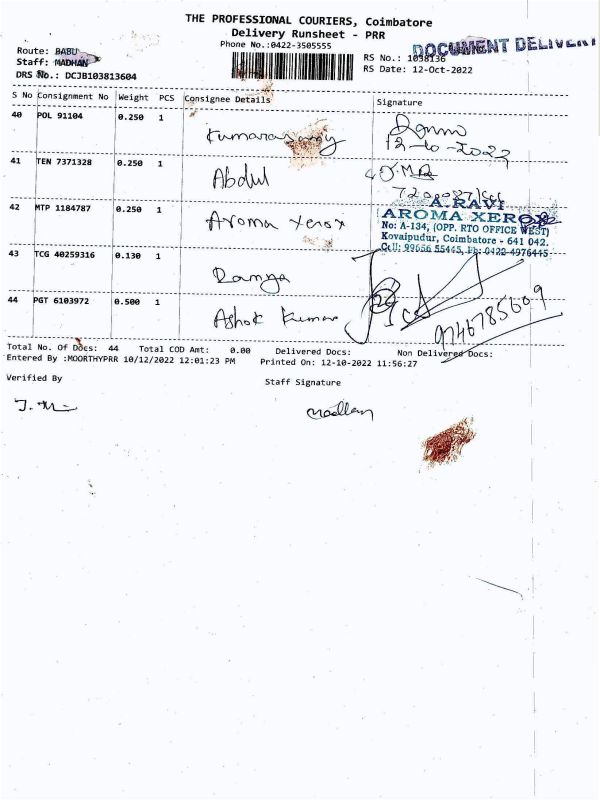 THE PROFESSIONAL COURIERS, Coimbatore
Delivery Runsheet - PRR
Phone No.:0422-3505555
DOCUMENT DELIVERY
Route: BABU
Staff: MADHAN
DRS No.: DCJB103813604
RS No.: 1038136
RS Date: 12-Oct-2022
S No Consignment No Weight PCS Consignee Details Signature
40 POL 91104 0.250 1 Kumarasamy
12-10-2022
41 TEN 7371328 0.250 1 Abdul
42 MTP 1184787 0.250 1 Aroma Xerox
A.RAVI
AROMA XEROX
No: A-134, (OPP. RTO OFFICE WEST)
Kovaipudur, Coimbatore - 641 042.
Cell: 99656 55445, Ph: 0422-4976445
43 TCG 40259316 0.130 1 Ramya
44 PGT 6103972 0.500 1 Ashok Kumar
9746785609
Total No. Of Docs: 44 Total COD Amt: 0.00 Delivered Docs: Non Delivered Docs:
Entered By :MOORTHYPRR 10/12/2022 12:01:23 PM Printed On: 12-10-2022 11:56:27
Verified By Staff Signature
Madhan